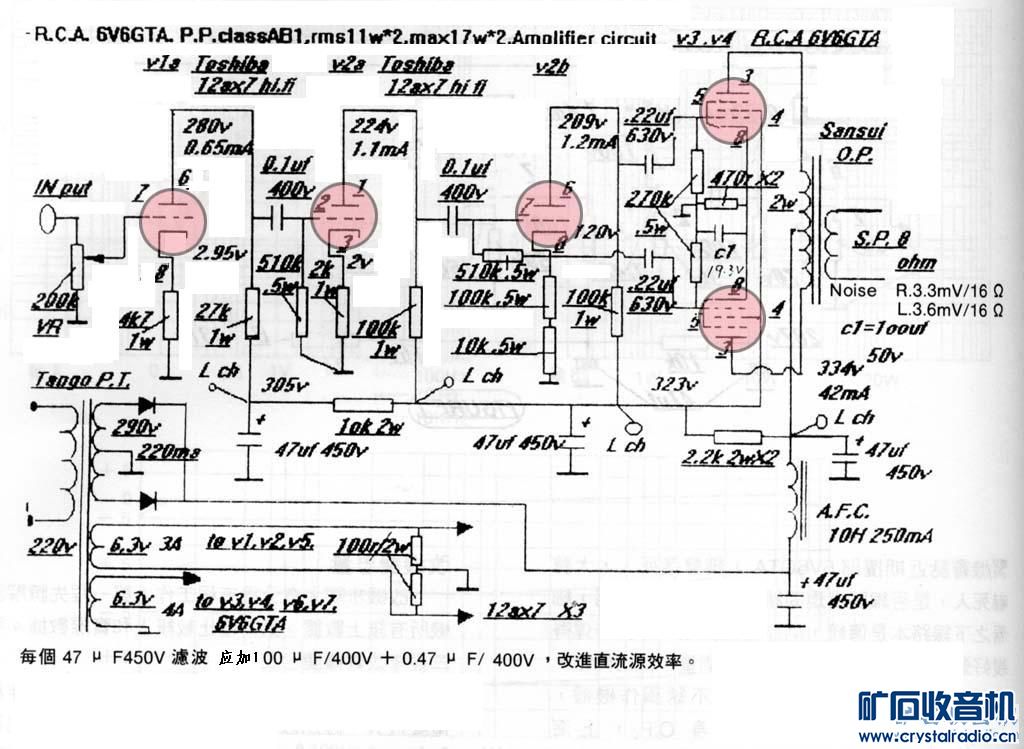 R.C.A. 6V6GTA. P.P.classAB1,rms11w*2.max17w*2.Amolifier circuit v3.v4 R.C.A 6V6GTA
v1a Toshiba 12ax7 hi.fi
v2a Toshiba 12ax7 hi fi
v2b
280v 0.65mA
224v 1.1mA
209v 1.2mA
.22uf 630v
3
5
4
8
Sansui O.P.
IN put
7
6
0.1uf 400v
2
1
3
0.1uf 400v
7
6
8
120v
270k .5w
470r X2 2w
2.95v
8
510k .5w
2k 1w
2v
510k .5w
c1
19.3v
S.P. 8 ohm
Noise R.3.3mV/16 Ω
L.3.6mV/16 Ω
200k VR
4k7 1w
27k 1w
100k 1w
100k .5w
10k .5w
100k 1w
.22uf 630v
8
5
4
3
c1=100uf 50v
Tango P.T.
L ch
305v
L ch
323v
334v 42mA
L ch
10k 2w
L ch
290v
220ma
47uf 450v
47uf 450v
2.2k 2wX2
47uf 450v
A.F.C.
10H 250mA
220v
6.3v 3A
to v1.v2.v5.
100r/2w
47uf 450v
6.3v 4A
to v3.v4. v6.v7.
6V6GTA
12ax7 X3
每個 47 μF450V 濾波 应加100 μF/400V＋0.47 μF/ 400V，改進直流源效率。
矿石收音机
www.crystalradio.cn